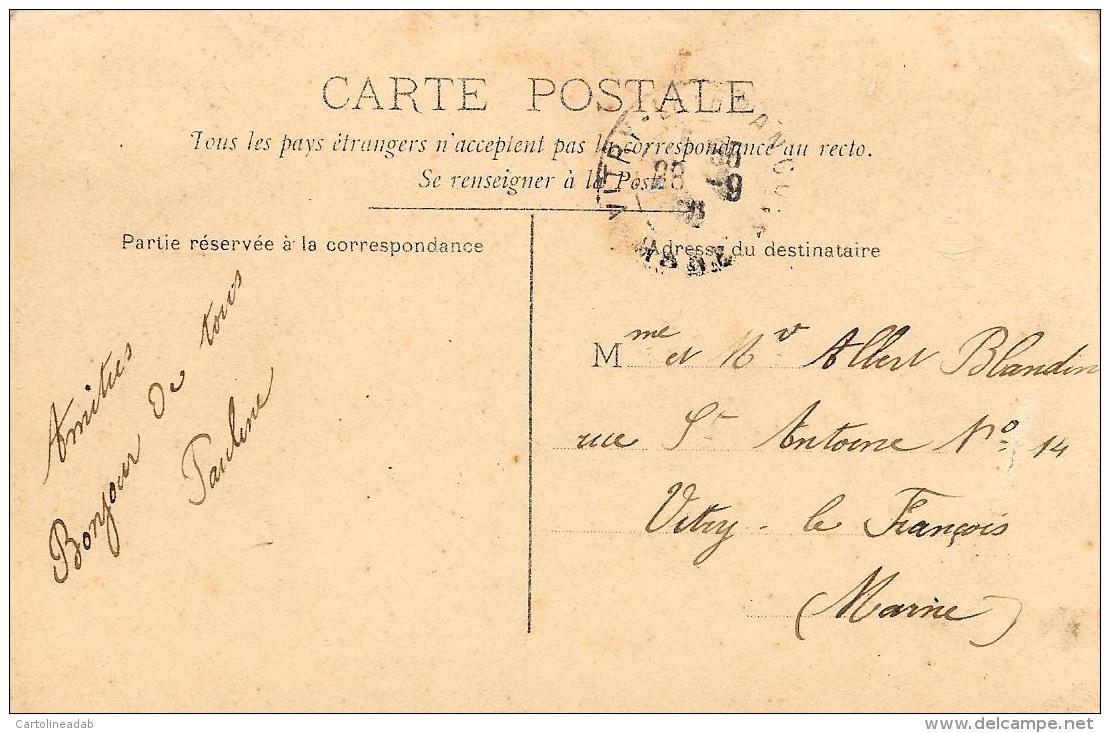 CARTE POSTALE
Tous les pays étrangers n'acceptent pas la correspondance au recto.
Se renseigner à la Poste
Partie réservée à la correspondance
Amitiés
Bonjour de tous
Pauline
VITRY
28
9
Adresse du destinataire
Mme et Mr Albert Blandin
rue St Antoine No 14
Vitry-le François
(Marne)
Cartolineadab
delcampe.net